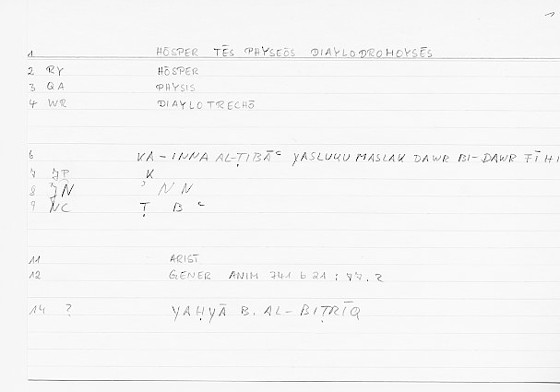 1
1 HŌSPER TĒS PHYSEŌS DIAYLODROMOYSĒS
2 RY HŌSPER
3 QA PHYSIS
4 WR DIAYLOTRECHŌ
6 KA-INNA AL-ṬIBĀʿ YASLUKU MASLAK DAWR BI-DAWR FĪHI
7 JP K
8 JN ʾNN
9 NC ṬBʿ
11 ARIST
12 GENER ANIM 741 b 21 :
14 ? YAḤYĀ B. AL-BIṬRĪQ